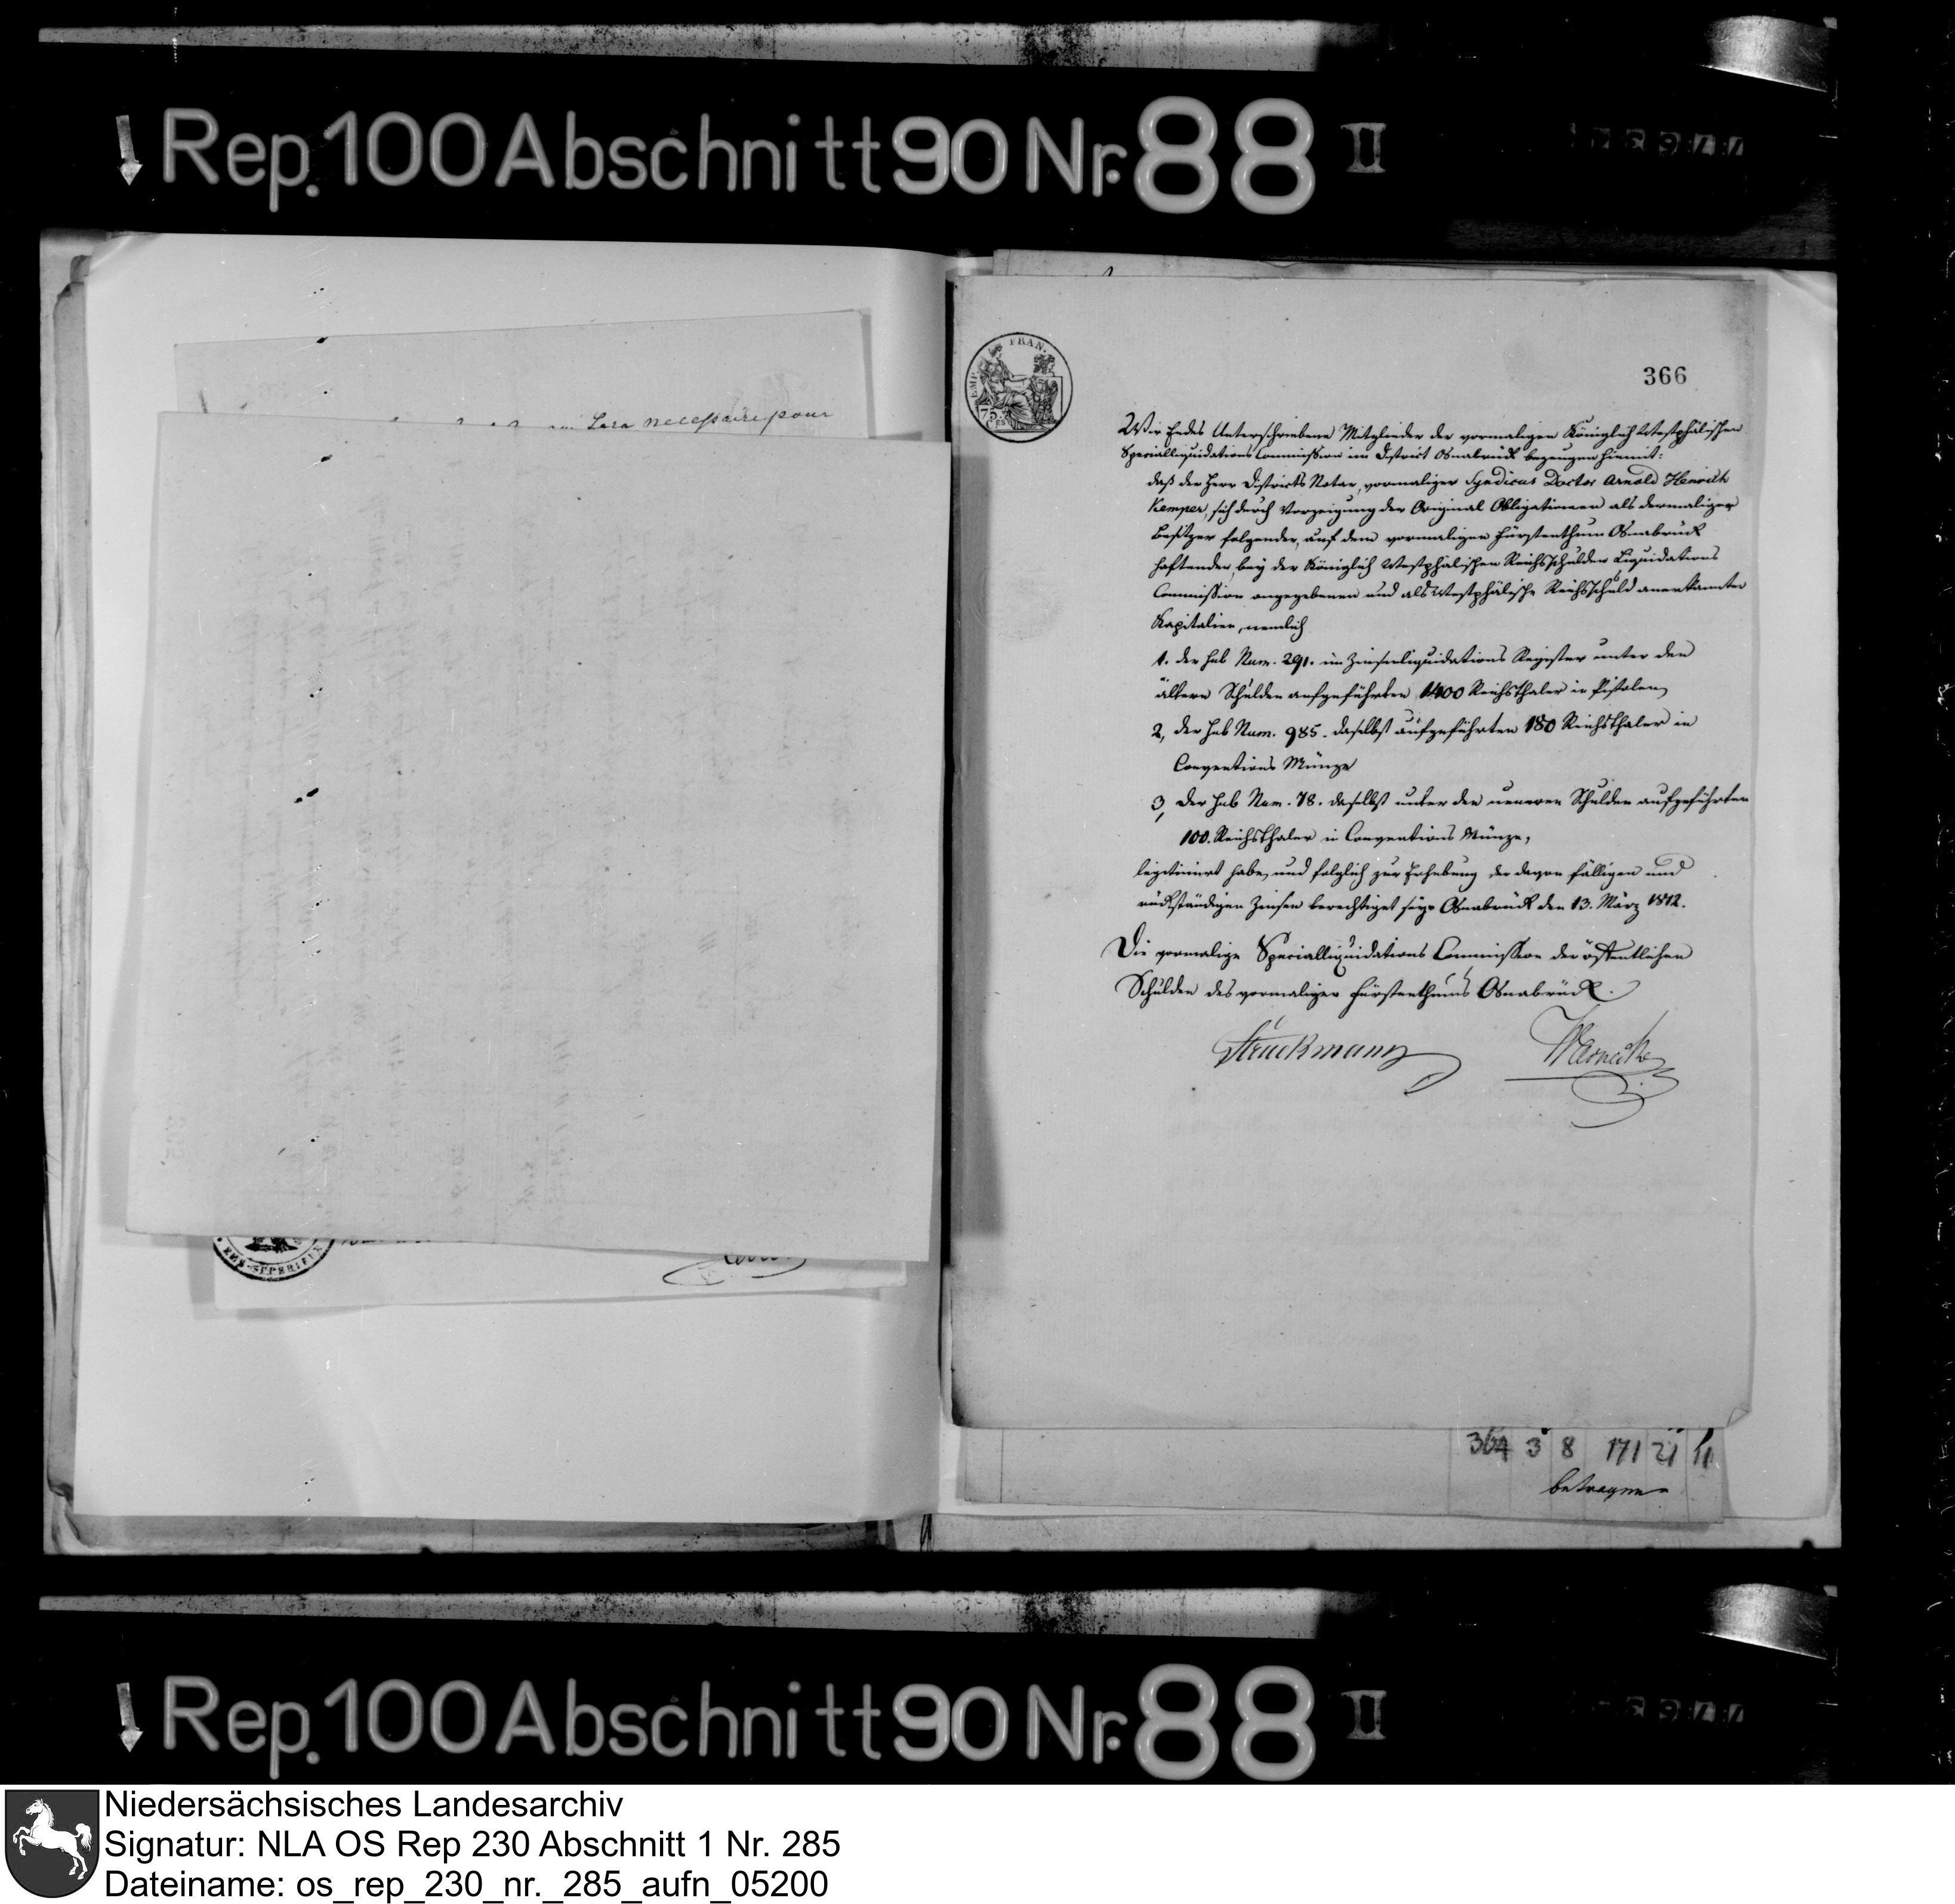 Rep. 100 Abschnitt 90 Nr. 88 II
sera necessaire pour
EMP. FRAN.
75
CES
366
Wir Endes Unterschriebene Mitglieder der vormaligen Königlich Westphälischen
Specialliquidations Commission im District Osnabrück bezeugen hiemit:
daß der Herr Districts Notar, vormaliger Syndicus Doctor Arnold Henrich
Kemper, sich durch Vorzeigung der Original Obligationen als dermaliger
Besitzer folgender, auf dem vormaligen Fürstenthum Osnabrück
haftenden, bey der Königlich Westphälischen Reichsschulden Liquidations
Commission angegebenen und als Westphälische Reichsschuld anerkannter
Kapitalien, nemlich
1. der sub Num. 291. im Zinsenliquidations Register unter den
ältern Schulden aufgeführten 1400 Reichsthaler in Pistolen,
2, der sub Num. 985. daselbst aufgeführten 180 Reichsthaler in
Conventions Münze
3, der sub Num. 78. daselbst unter den neueren Schulden aufgeführten
100. Reichsthaler in Conventions Münze,
legitimirt habe, und folglich zur Erhebung der davon fälligen und
rückständigen Zinsen berechtiget sey. Osnabrück den 13. März 1812.
Die vormalige Specialliquidations Commission der öffentlichen
Schulden des vormaligen Fürstenthums Osnabrück.
Struckmann Warnecke
364 3 8 171 21 11
betragen
Rep. 100 Abschnitt 90 Nr. 88 II
Niedersächsisches Landesarchiv
Signatur: NLA OS Rep 230 Abschnitt 1 Nr. 285
Dateiname: os_rep_230_nr._285_aufn_05200